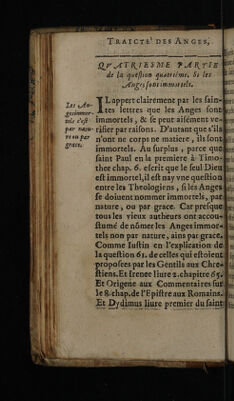 TRAICTE' DES ANGES,
QVATRIESME PARTIE
de la question quatriéme. Si les
Anges sont immortels.
Les An-
ges immor-
tels c'est
par natu-
re ou par
grace.
IL appert clairement par les sain-
tes lettres que les Anges sont
immortels, & se peut aisément ve-
rifier par raisons. D'autant que s'ils
n'ont ne corps ne matiere, ils sont
immortels. Au surplus, parce que
saint Paul en la premiere à Timo-
thee chap. 6. escrit que le seul Dieu
est immortel, il est nay vne question
entre les Theologiens, si les Anges
se doiuent nommer immortels, par
nature, ou par grace. Car presque
tous les vieux autheurs ont accou-
stumé de nómer les Anges immor-
tels non par nature, ains par grace.
Comme Iustin en l'explication de
la question 61. de celles qui estoient
proposees par les Gentils aux Chre-
stiens. Et Irenee liure 2. chapitre 65.
Et Origene aux Commentaires sur
le 8. chap. de l'Epistre aux Romains.
Et Dydimus liure premier du saint